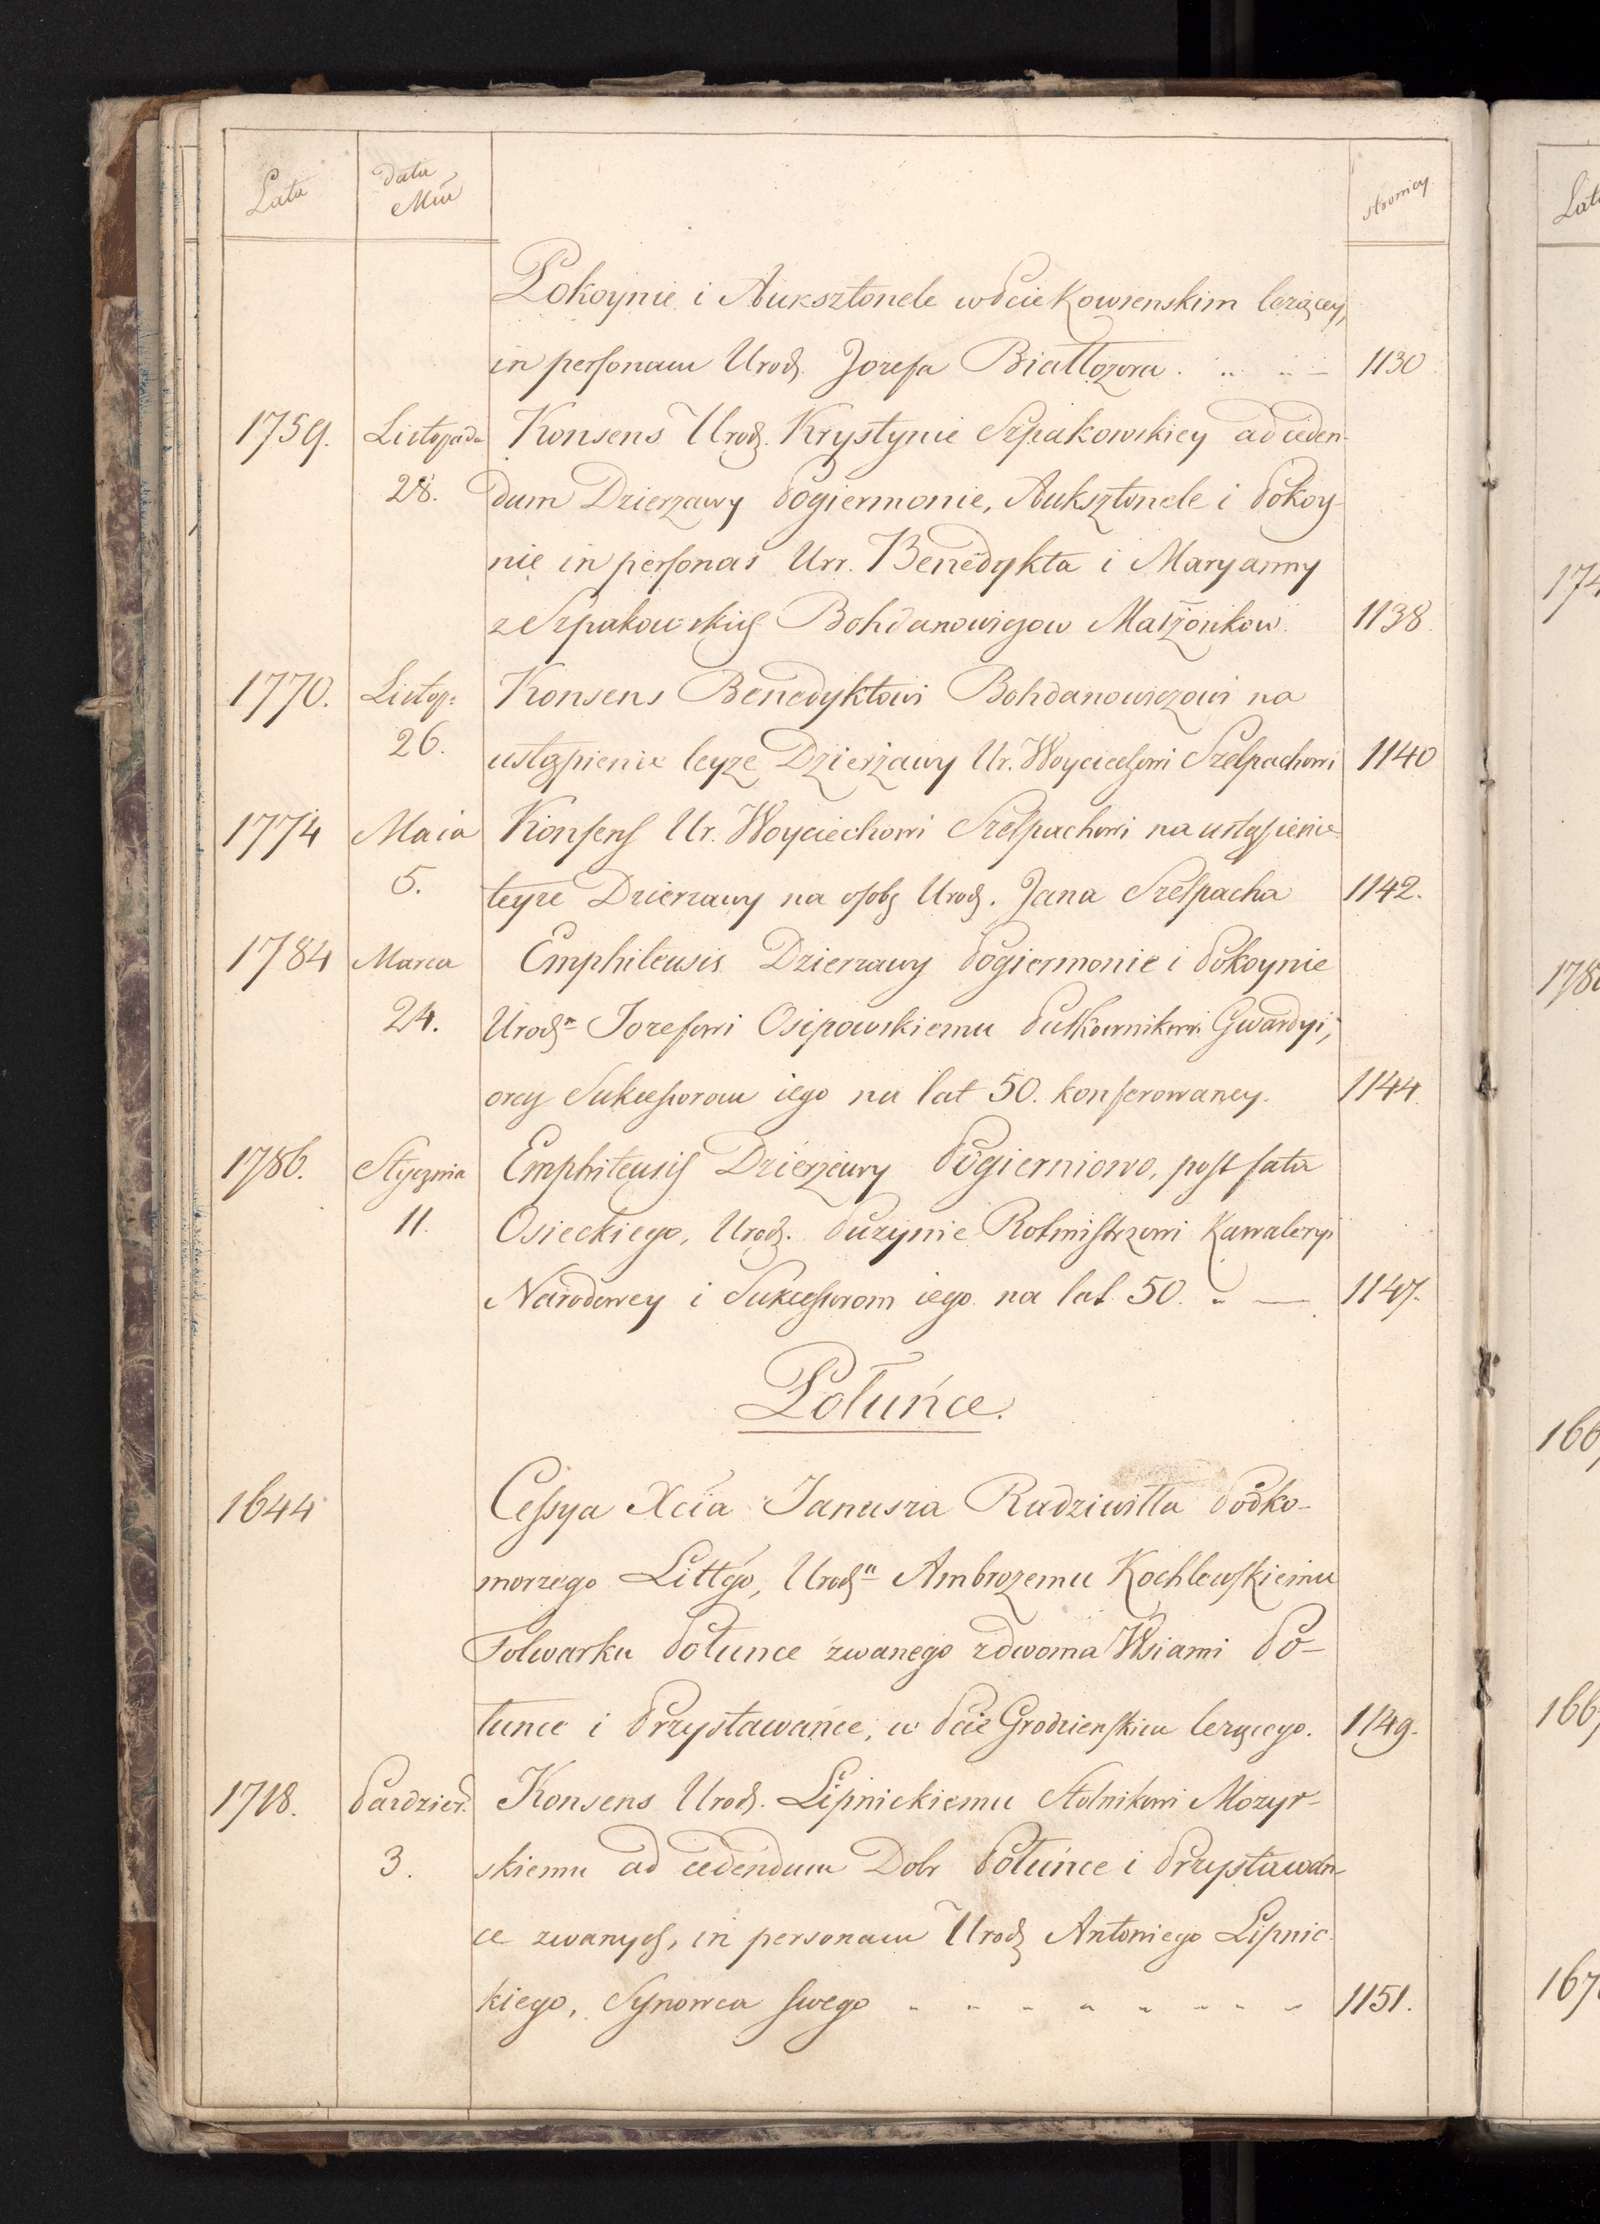 Lata data Mca stronicy
Pokoynie i Auksztonele w Pcie Kowienskim leżącey,
in personam Urodz. Jozefa Białłozora . .. .. — 1130
1759. Listopada Konsens Urodz. Krystynie Szpakowskiey ad ceden-
28. dum Dzierzawy Pogiermonie, Auksztonele i Pokoy-
nie in personas Urr. Benedykta i Maryanny
z Szpakowskich Bohdanowiczow Małżonkow. 1138
1770. Listop: Konsens Benedyktowi Bohdanowiczowi na
26. ustąpienie teyże Dzierżawy Ur. Woyciechowi Szelpachowi 1140
1774 Maia Konsens Ur. Woyciechowi Szelpachowi na ustąpienie
5. teyze Dzierzawy na osobę Urodz. Jana Szelpacha 1142.
1784 Marca Emphiteusis Dzierzawy Pogiermonie i Pokoynie
24. Urodzn Jozefowi Osipowskiemu Pułkownikowi Gwardyi,
oraz Sukcessorom iego na lat 50. konferowaney. 1144
1786. Stycznia Emphiteusis Dzierżawy Pogierniowo, post fata
11. Osieckiego, Urodz. Puzynie Rotmistrzowi Kawaleryi
Narodowey i Sukcessorom iego na lat 50. .. — 1147.
Połuńce.
1644 Cessya Xcia Janusza Radziwiłła Podko-
morzego Littgo, Urodzn Ambrożemu Kochlewskiemu
Folwarku Połunce zwanego z dwoma Wsiami Po-
łunce i Przystawańce, w Pcie Grodzienskim leżącego. 1149.
1718. Pazdzier. Konsens Urodz. Lipnickiemu Stolnikowi Mozyr-
3. skiemu ad cedendum Dobr Połuńce i Przystawań-
ce zwanych, in personam Urodz Antoniego Lipnic-
kiego, Synowca swego - - - - - - - - 1151.
Lata
174
178
166
166
167